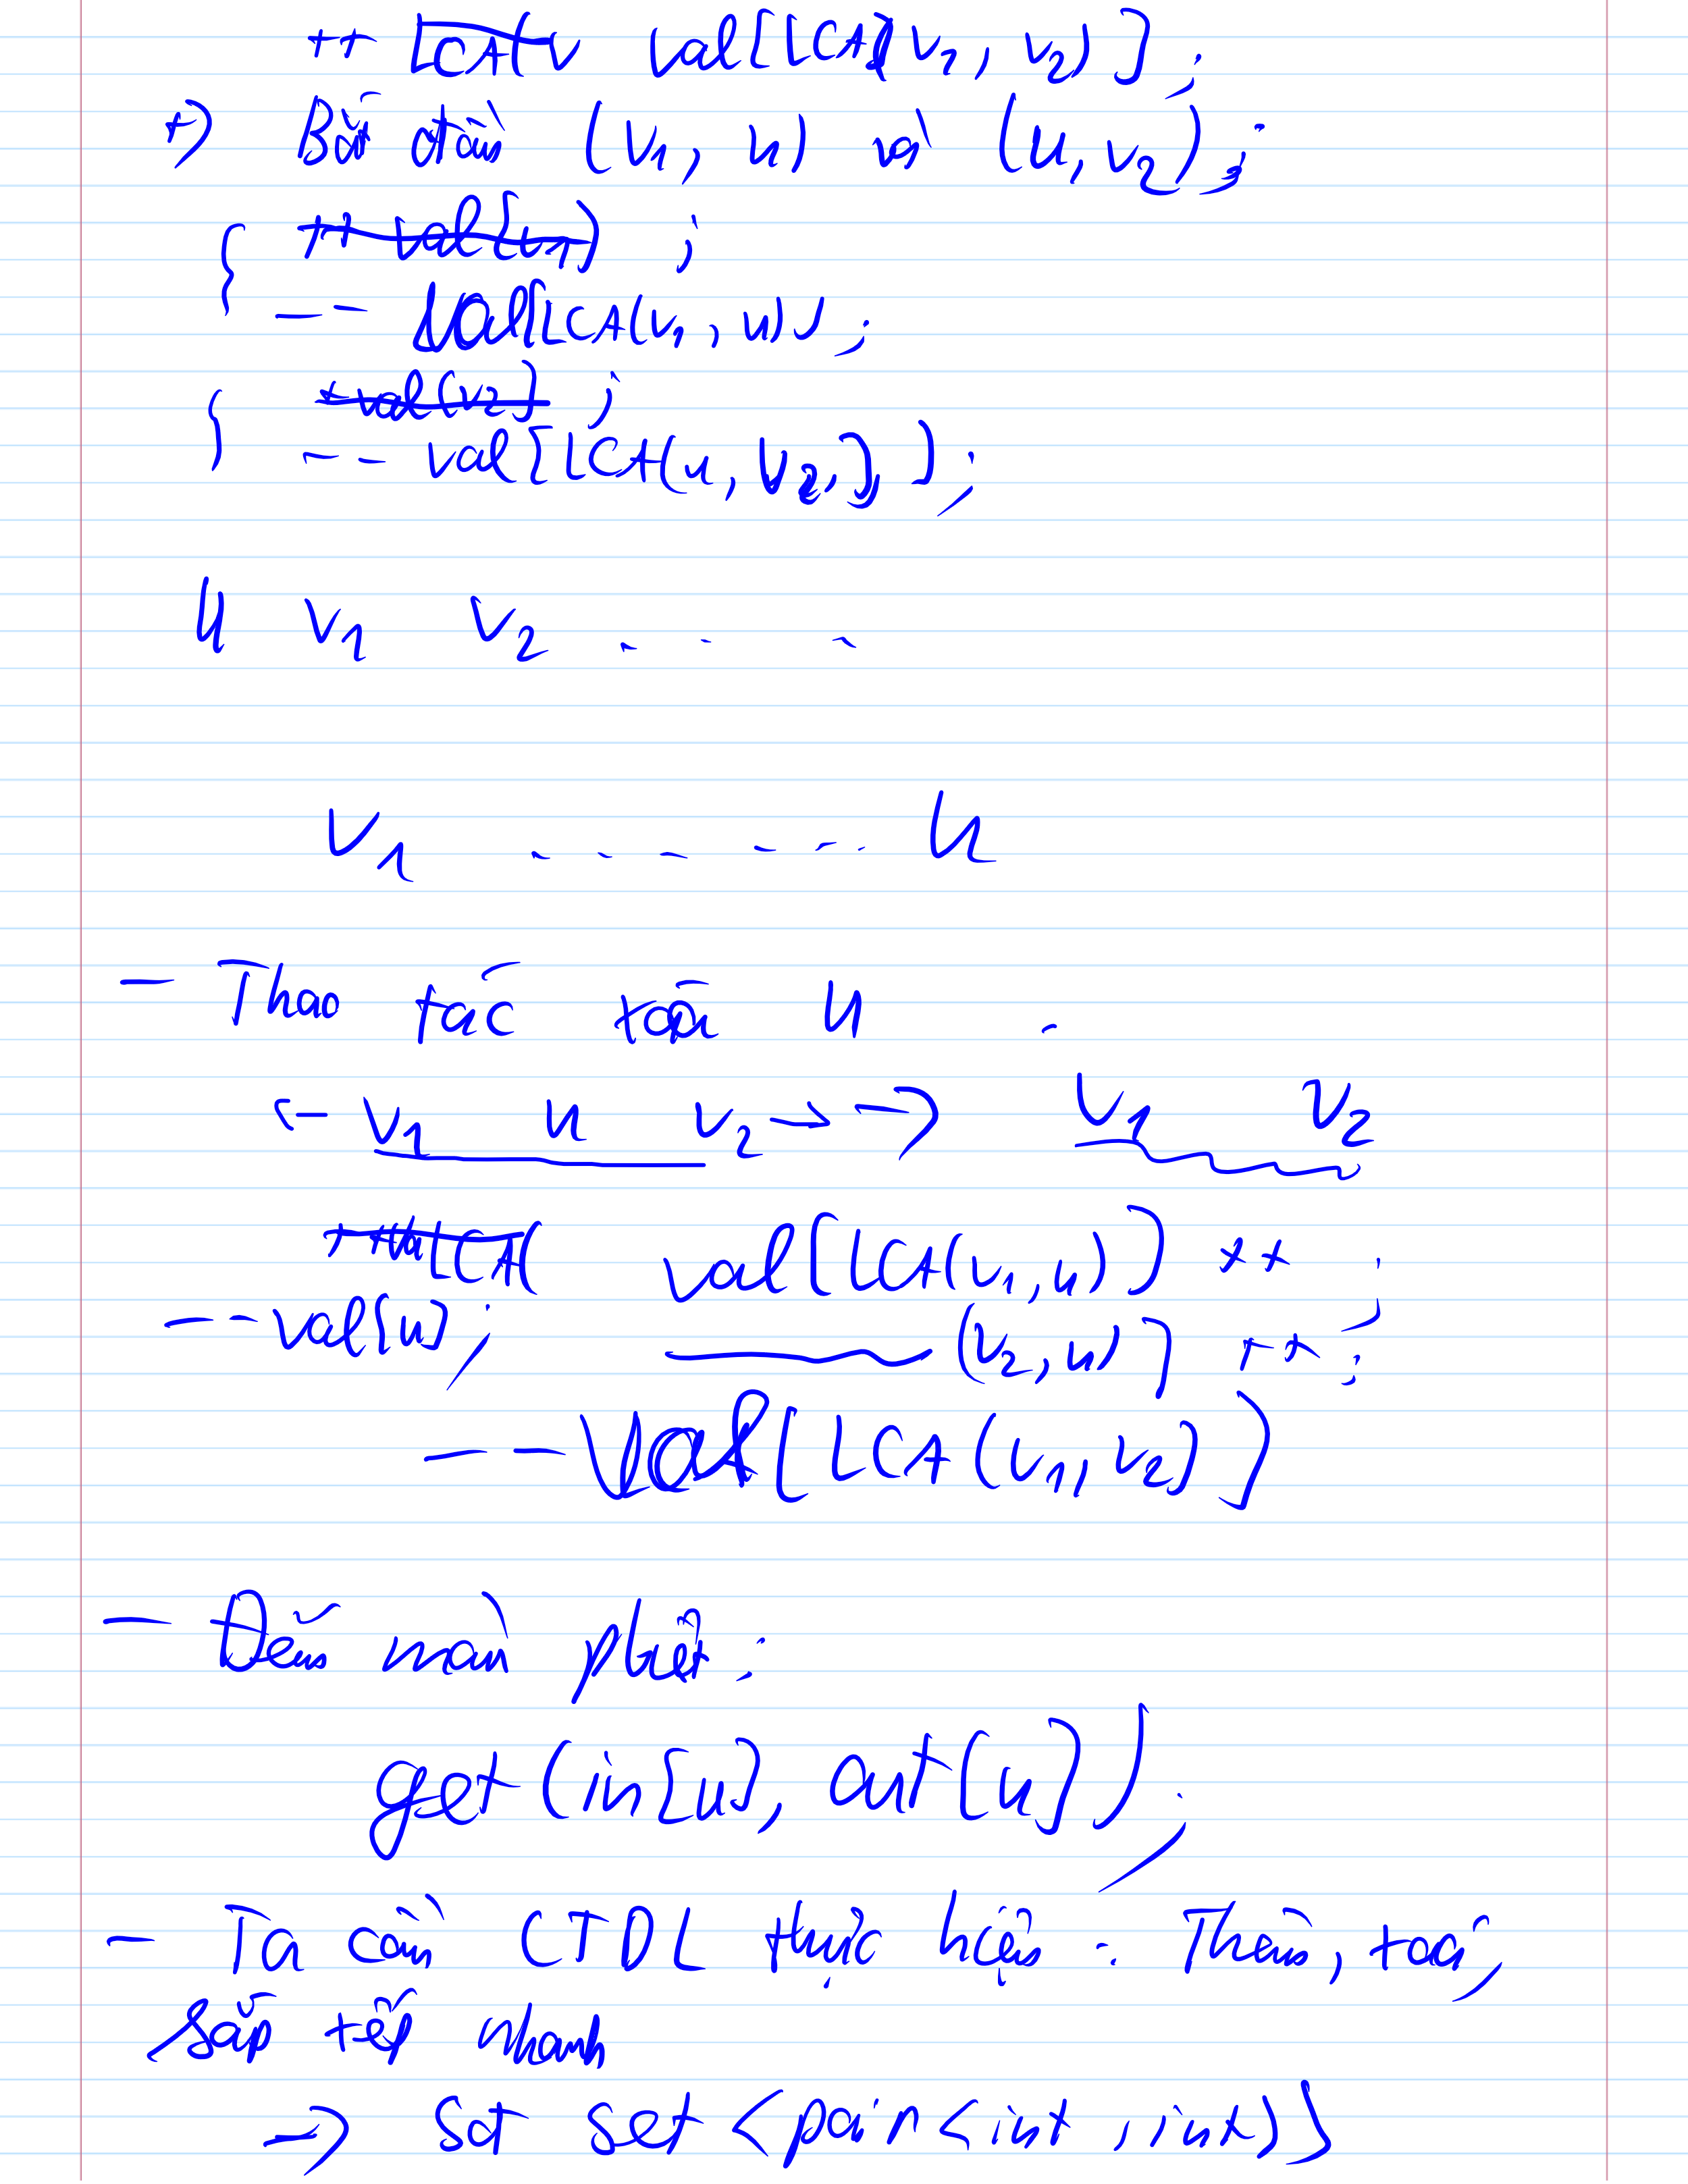 ++ val[LCA(v1, v2)];
=> Bắt đầu (v1, u) và (u, v2);
;
-- val[LCA(v1, u)];
;
-- val[LCA(u, v2)]);
u v1 v2 . . .
v1 ...... u
- Thao tác xoá u .
<- v1 u v2 -> => v1 v2
val[LCA(v1, u)] ++ ;
-- val[u];
(v2, u)] ++ ;
-- val[LCA(v1, v2)]
- Đếm màu phân biệt:
get(in[u], out[u]);
- Ta cần CTDL thực hiện : Thêm, xoá,
sắp xếp nhanh
-> set <pair<int, int>>